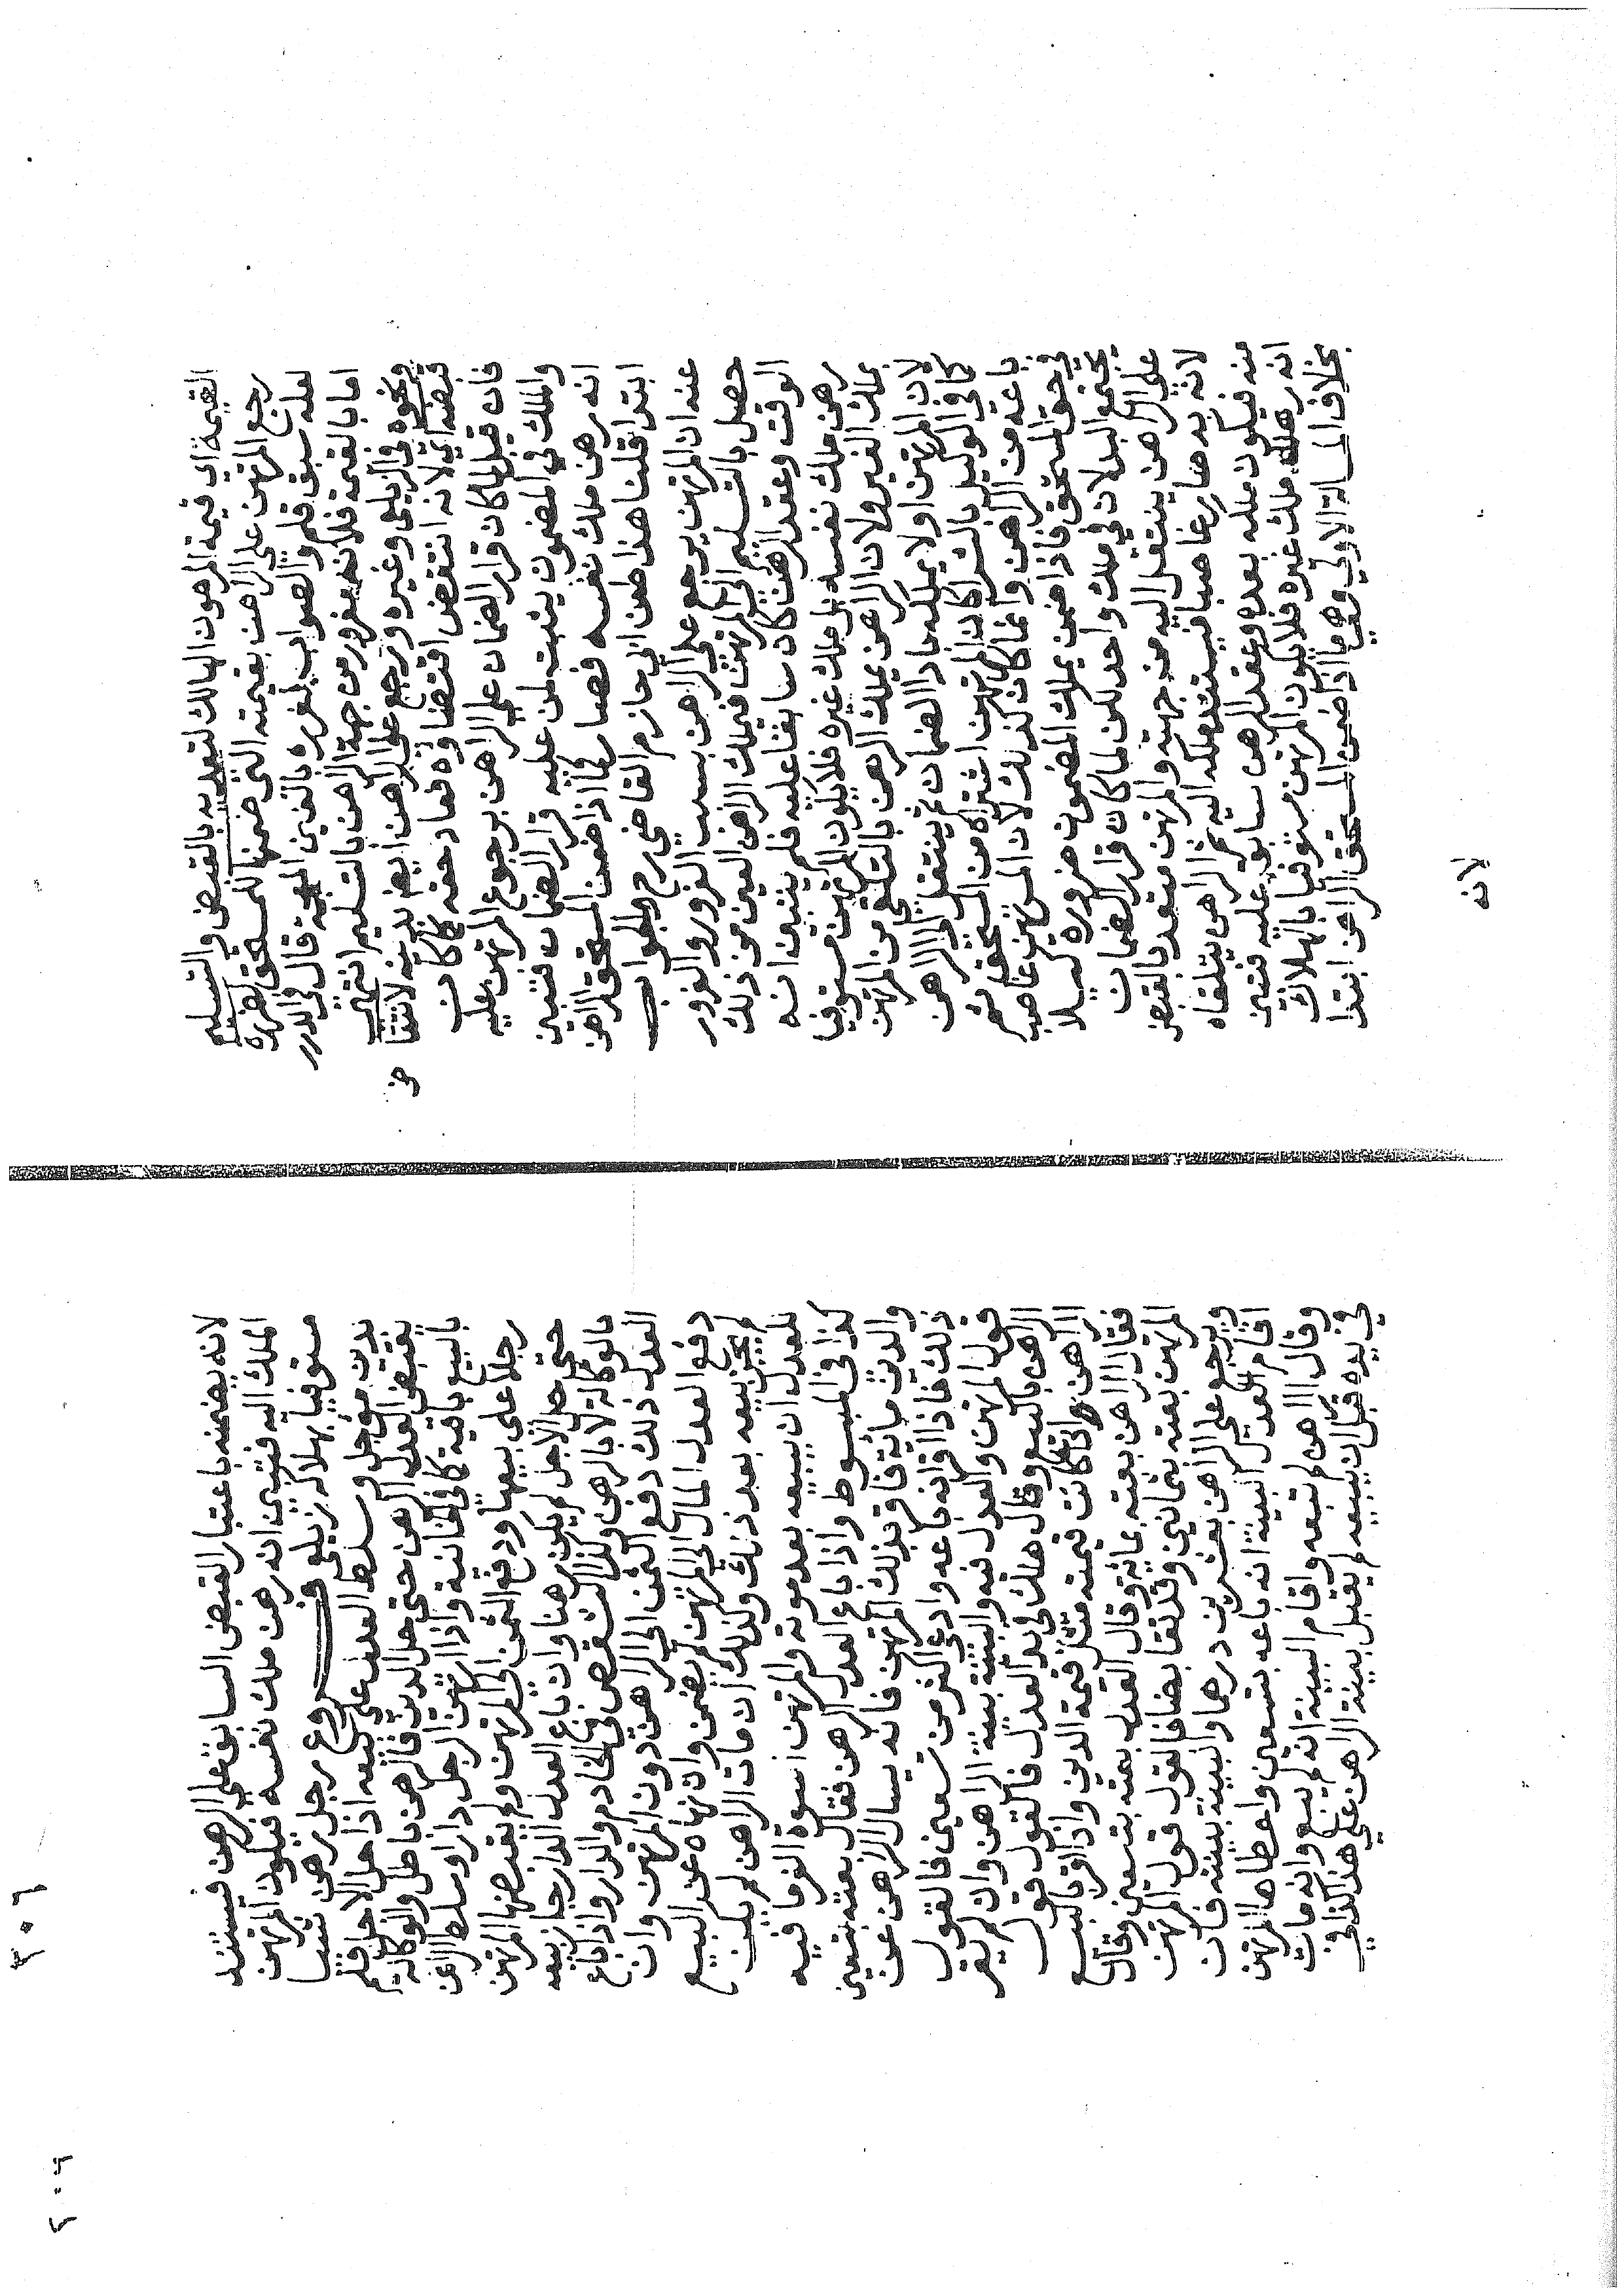 القيمة اي قيمة المرهون الهالك لتعديه بالقبض والتسليم
رجع المرتهن على الراهن بقيمته التي ضمنها للمستحق لضرره
لعله سبق قلم والصواب لغرره بالغين المعجمة قال في الدرر
اما بالقيمة فلانه مغرور من جهة الراهن بالتسليم انتهى
ونحوه في الزيلعي وغيره ورجع على الراهن ايضا بدينه لانتقا
ض قبضه اي لانه انتقض اقتضاؤه فعاد حقه كما كان
فان قيل لما كان قرار الضمان على الراهن برجوع المرتهن عليه
والملك في المضمون يثبت لمن عليه قرار الضمان فتبين
انه رهن ملك نفسه فصار كما اذا ضمن المستحق الراهن
ابتداء قلنا هذا طعن ابي حازم القاضي رح والجواب
عنه ان المرتهن يرجع على الراهن بسبب الغرور والغرور
حصل بالتسليم الى المرتهن فيملك الراهن العين من ذلك
الوقت وعقد الرهن كان سابقا عليه فلم يتبين انه
رهن ملك نفسه بل ملك غيره فلا يكون المرتهن مستوفيا
بملك الغير ولان الراهن يملك الرهن بالتلقي من المرتهن
لان المرتهن اولا يملكه بادا الضمان ثم ينتقل الى الراهن
كما في الوكيل بالشرا كان المرتهن اشتراه من المستحق ثم
باعه من الراهن وانما كان كذلك لان المرتهن غاصب
في حق المستحق فاذا ضمن يملك المضمون ضرورة كيلا
يجتمع البدلان في ملك واحد لكن لما كان قرار الضمان
على الراهن ينتقل اليه من جهته والمرتهن متعد بالقبض
لانه به صار غاصبا فيستند ملكه اليه ثم الراهن يتلقاه
منه فيكون ملكه بعده وعقد الرهن سابق عليه فتبين
انه رهن ملك غيره فلا يكون المرتهن مستوفيا بالهلاك
بخلاف المسالة الاولي وهي ما اذا ضمن المستحق الراهن ابتدا
لانه
لانه يضمنه باعتبار القبض السابق على الرهن فيستند
الملك اليه فتبين انه رهن ملك نفسه فيكون المرتهن
مستوفيا بهلاكه زيلعي فروع رجل رهن شيا
بدين مؤجل وسلط العدل على بيعه اذا حل الاجل فلم
يقبض العدل الرهن حتى حل الدين فالرهن باطل والوكالة
بالبيع باقية كما في الخانية واذا ارتهن الرجل دارا وسلط الراهن
رجلا على بيعها ودفع الثمن الى المرتهن ولم يقبضها المرتهن
حتى حل الاجل لم يكن رهنا وان باع العدل الدار جاز بيعه
بالوكالة لا بالرهن وكذا الشقص في الخادم والدار واذا باع
العدل ذلك دفع الثمن الى الراهن دون المرتهن وان
دفع العدل المال الى المرتهن لم يضمن وان نهاه عن البيع
لم يجز بيعه بعد ذلك وكذلك ان مات الراهن لم يكن
للعدل ان يبيعه بعد موته والمرتهن اسوة الغرما فيه
كذا في المبسوط واذا باع العدل الرهن فقال بعته بتسعين
والدين مائة فاقر بذلك المرتهن فانه يسال الراهن عن
ذلك فاذا اقر انه باعه وادعى اكثر من تسعين فالقول
قول المرتهن والعدل فيه والبينة بينة الراهن وان لم يقر
الراهن بالبيع وقال هلك في يد العدل فالقول قول
الراهن اذا كانت قيمته مثل قيمة الدين واذا اقر بالبيع
فقال الراهن بعته بمائة وقال العدل بعته بتسعين وقال
المرتهن بعته بثمانين وقد تقابضا فالقول قول المرتهن
ويرجع على الراهن بعشرين درهما والبينة بينته فان
اقام العدل البينة انه باعه بتسعين واعطاها المرتهن
وقال الراهن لم تبعه واقام البينة انه لم يبع وانه مات
في يده قبل ان يبيعه لم يقبل بينة الراهن على هذا كذا في
٣٠٦